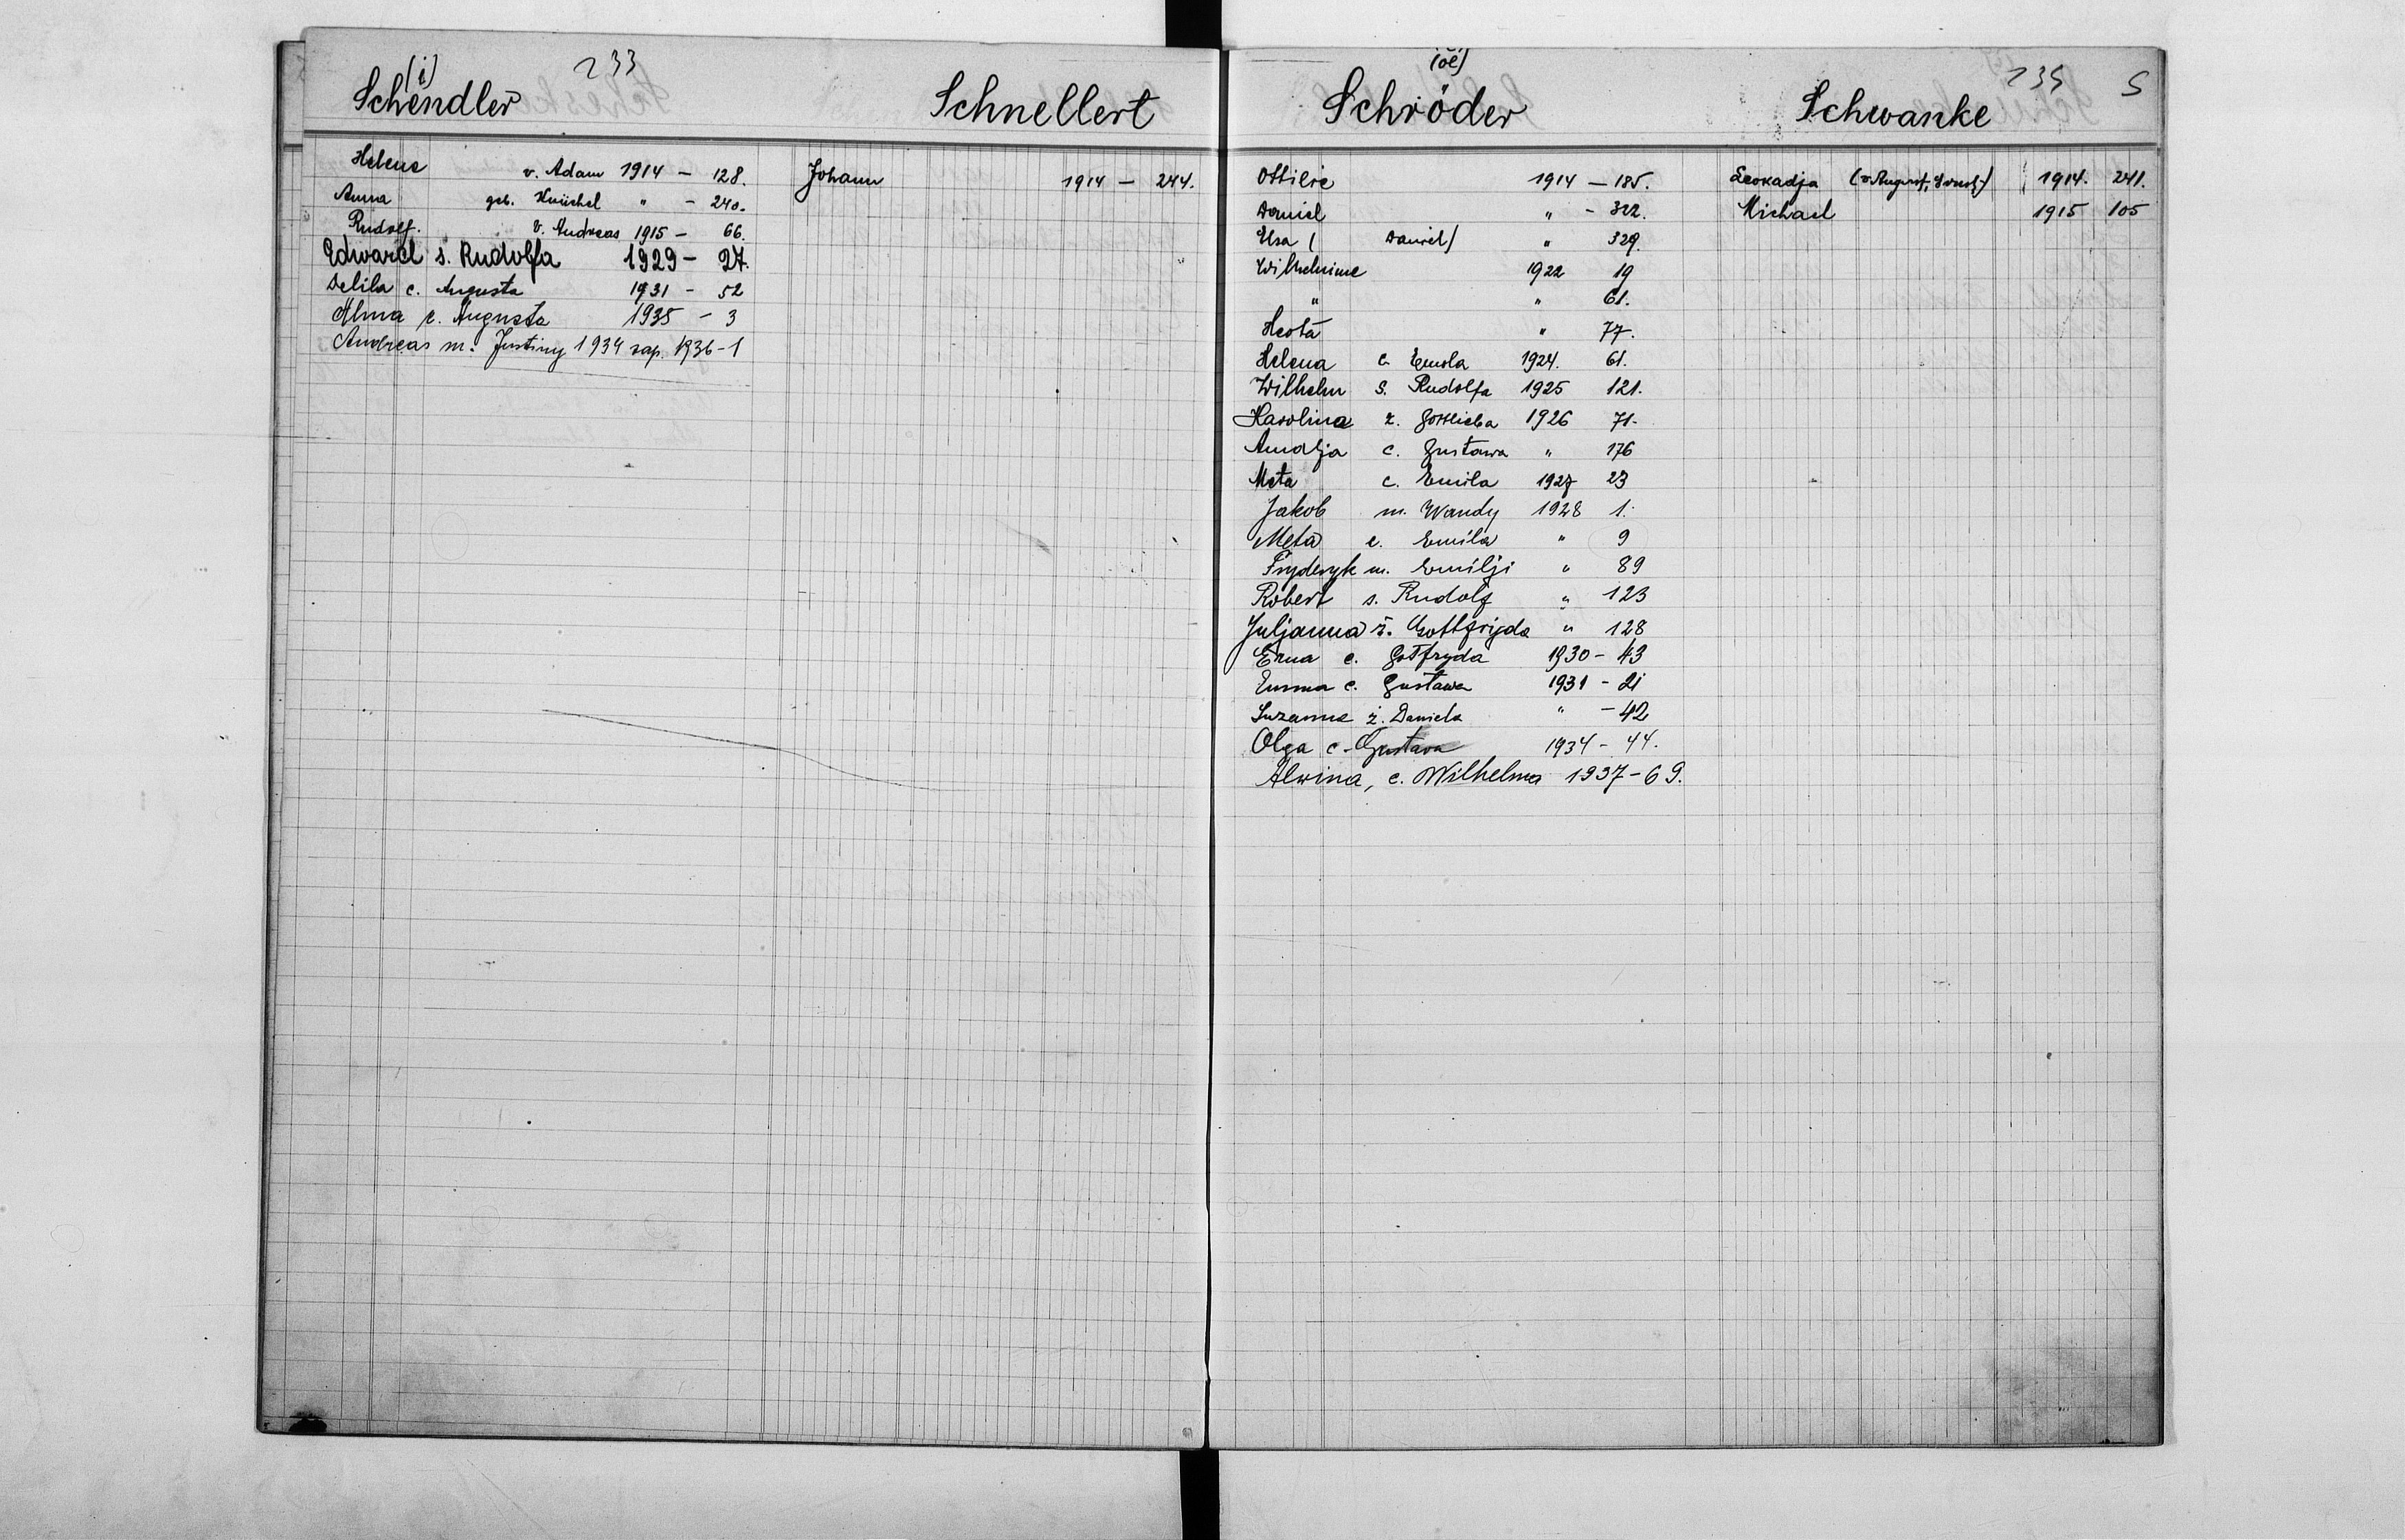 233
(i)
Schendler
Helene v. Adam 1914 — 128.
Anna geb. " — 240.
Rudolf. v. Andreas 1915 — 66.
Edward s. Rudolfa 1929 — 27.
Delila c. Augusta 1931 — 52
Alma c. Augusta 1935 — 3
Andreas m. Justiny 1934 zap. 1936 — 1
Schnellert
Johann 1914 — 244.
(oe)
Schröder
Ottilie 1914 — 185.
Daniel " — 322.
Elsa ( Daniel) " 329.
Wilhelmine 1922 19
" " 61.
Herta " 77.
Helena c. Emila 1924. 61.
Wilhelm s. Rudolfa 1925 121.
Karolina ż. Gottlieba 1926 71.
Amalja c. Gustawa " 176
Meta c. Emila 1927 23
Jakob m. Wandy 1928 1.
Meta c. Emila " 9
Fryderyk m. Emilji " 89
Robert s. Rudolf " 123
Juljanna ż. Gottfryda " 128
Erna c. Gotfryda 1930 — 43
Emma c. Gustawa 1931 — 21
Zuzanna ż. Daniela " — 42
Olga c. Gustava 1934 — 44.
Alwina, c. Wilhelma 1937 — 69.
235 S
Schwanke
Leokadja (v. August, 1914. 241.
Michael 1915 105